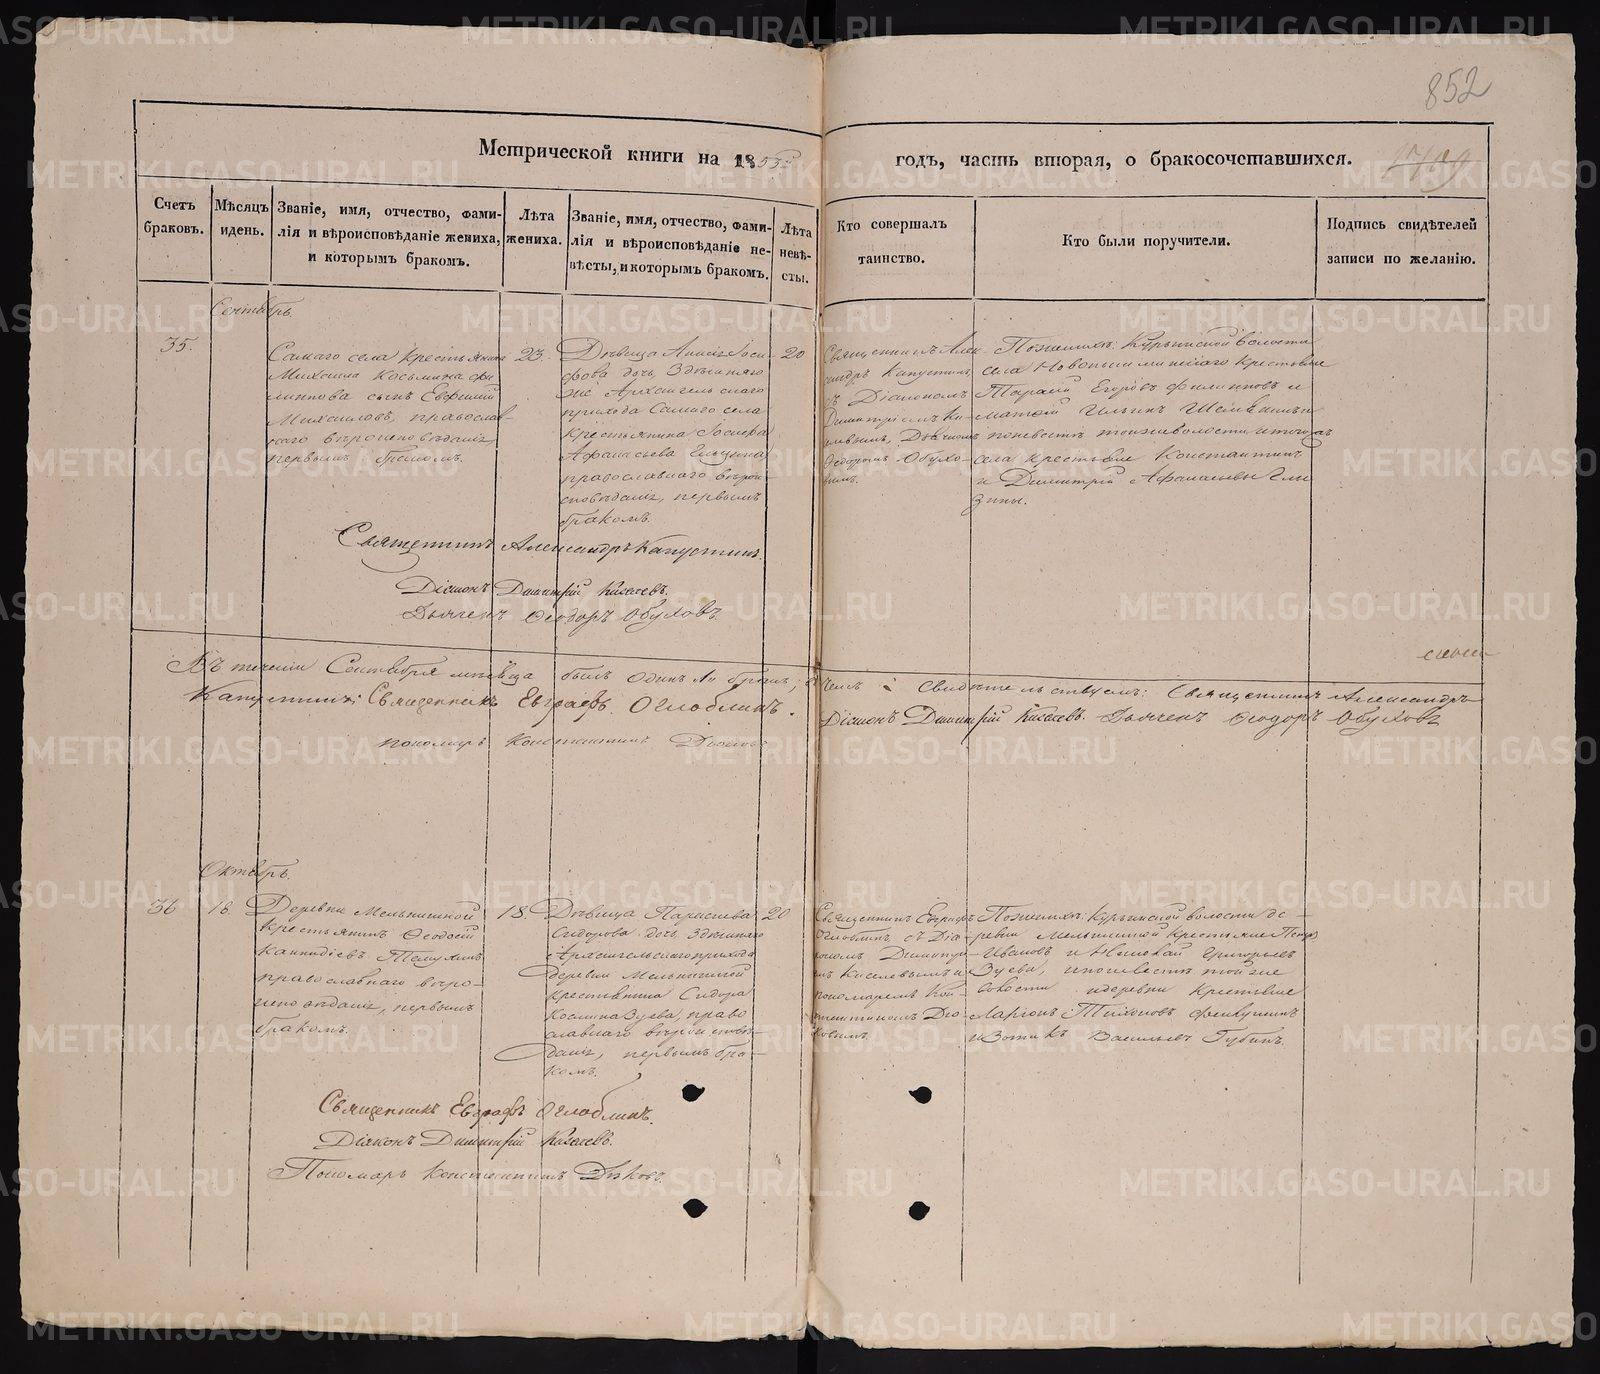 852
Метрической книги на 1855 годъ, часть вторая, о бракосочетавшихся.
1709
Счетъ браковъ.
Мѣсяцъ и день.
Званіе, имя, отчество, фамилія и вѣроисповѣданіе жениха, и которымъ бракомъ.
Лѣта жениха.
Званіе, имя, отчество, фамилія и вѣроисповѣданіе невѣсты, и которымъ бракомъ.
Лѣта невѣсты.
Кто совершалъ таинство.
Кто были поручители.
Подпись свидѣтелей записи по желанію.
Сентябрь.
35.
Самаго села Крестьянина
Михаила Косьмина Фи
липпова сынъ Евфимій
Михаиловъ, православ-
наго вѣроисповѣданія
первымъ бракомъ.
23.
Дѣвица Анисія Іоси
фова дочь, Здѣшняго
Архангельскаго
прихода Самаго села
крестьянина Іосифа
Афанасьева
православнаго вѣрои-
сповѣданія, первымъ
бракомъ.
20
Священникъ Алек-
сандръ Капустинъ,
съ Діакономъ
Димитріемъ Ки-
Дьячкомъ
Ѳедоромъ Обухо-
вымъ.
По женихѣ: Курьинской волости
села крестьяне
Тарасій Егоровъ Филипповъ и
Матѳій Ильинъ
по невѣстѣ тойже волости и тогожъ
села крестьяне Константинъ
и Димитрій Афанасьевы Ели
зины.
Священникъ Александръ Капустинъ.
Діаконъ Димитрій Киселевъ.
Дьячекъ Ѳеодоръ Обуховъ.
Въ теченіи Сентября мѣсяца былъ одинъ бракъ; въ чемъ и свидѣтельствуемъ: Священникъ Александръ
Капустинъ; Священникъ Евграфъ Оглоблинъ. Діаконъ Димитрій Киселевъ. Дьячекъ Ѳеодоръ Обуховъ
пономарь Константинъ
Октябрь.
36
18.
Деревни Мельничной
крестьянинъ Ѳеодосій
православнаго вѣро-
исповѣданія, первымъ
бракомъ.
18.
Дѣвица Параскева
Сидорова дочь, Здѣшняго
Архангельскаго прихода
деревни Мельничной
крестьянина Сидора
Космина Зуева, право
славнаго вѣроисповѣ-
данія, первымъ бра-
комъ.
20
Священникъ Евграфъ
Оглоблинъ, съ Діа-
кономъ Димитрі-
емъ Киселевымъ и
пономаремъ Кон-
стантиномъ Дья-
ковымъ.
По женихѣ: Курьинской волости де-
ревни Мельничной крестьяне Петръ
Ивановъ и Николай Григорьевъ
Зуевы, и по невѣстѣ той же
волости и деревни крестьяне
Ларіонъ Тихоновъ
и Зотикъ Васильевъ Губинъ.
Священникъ Евграфъ Оглоблинъ.
Діаконъ Димитрій Киселевъ.
Пономарь Константинъ Дьяковъ.
METRIKI.GASO-URAL.RU